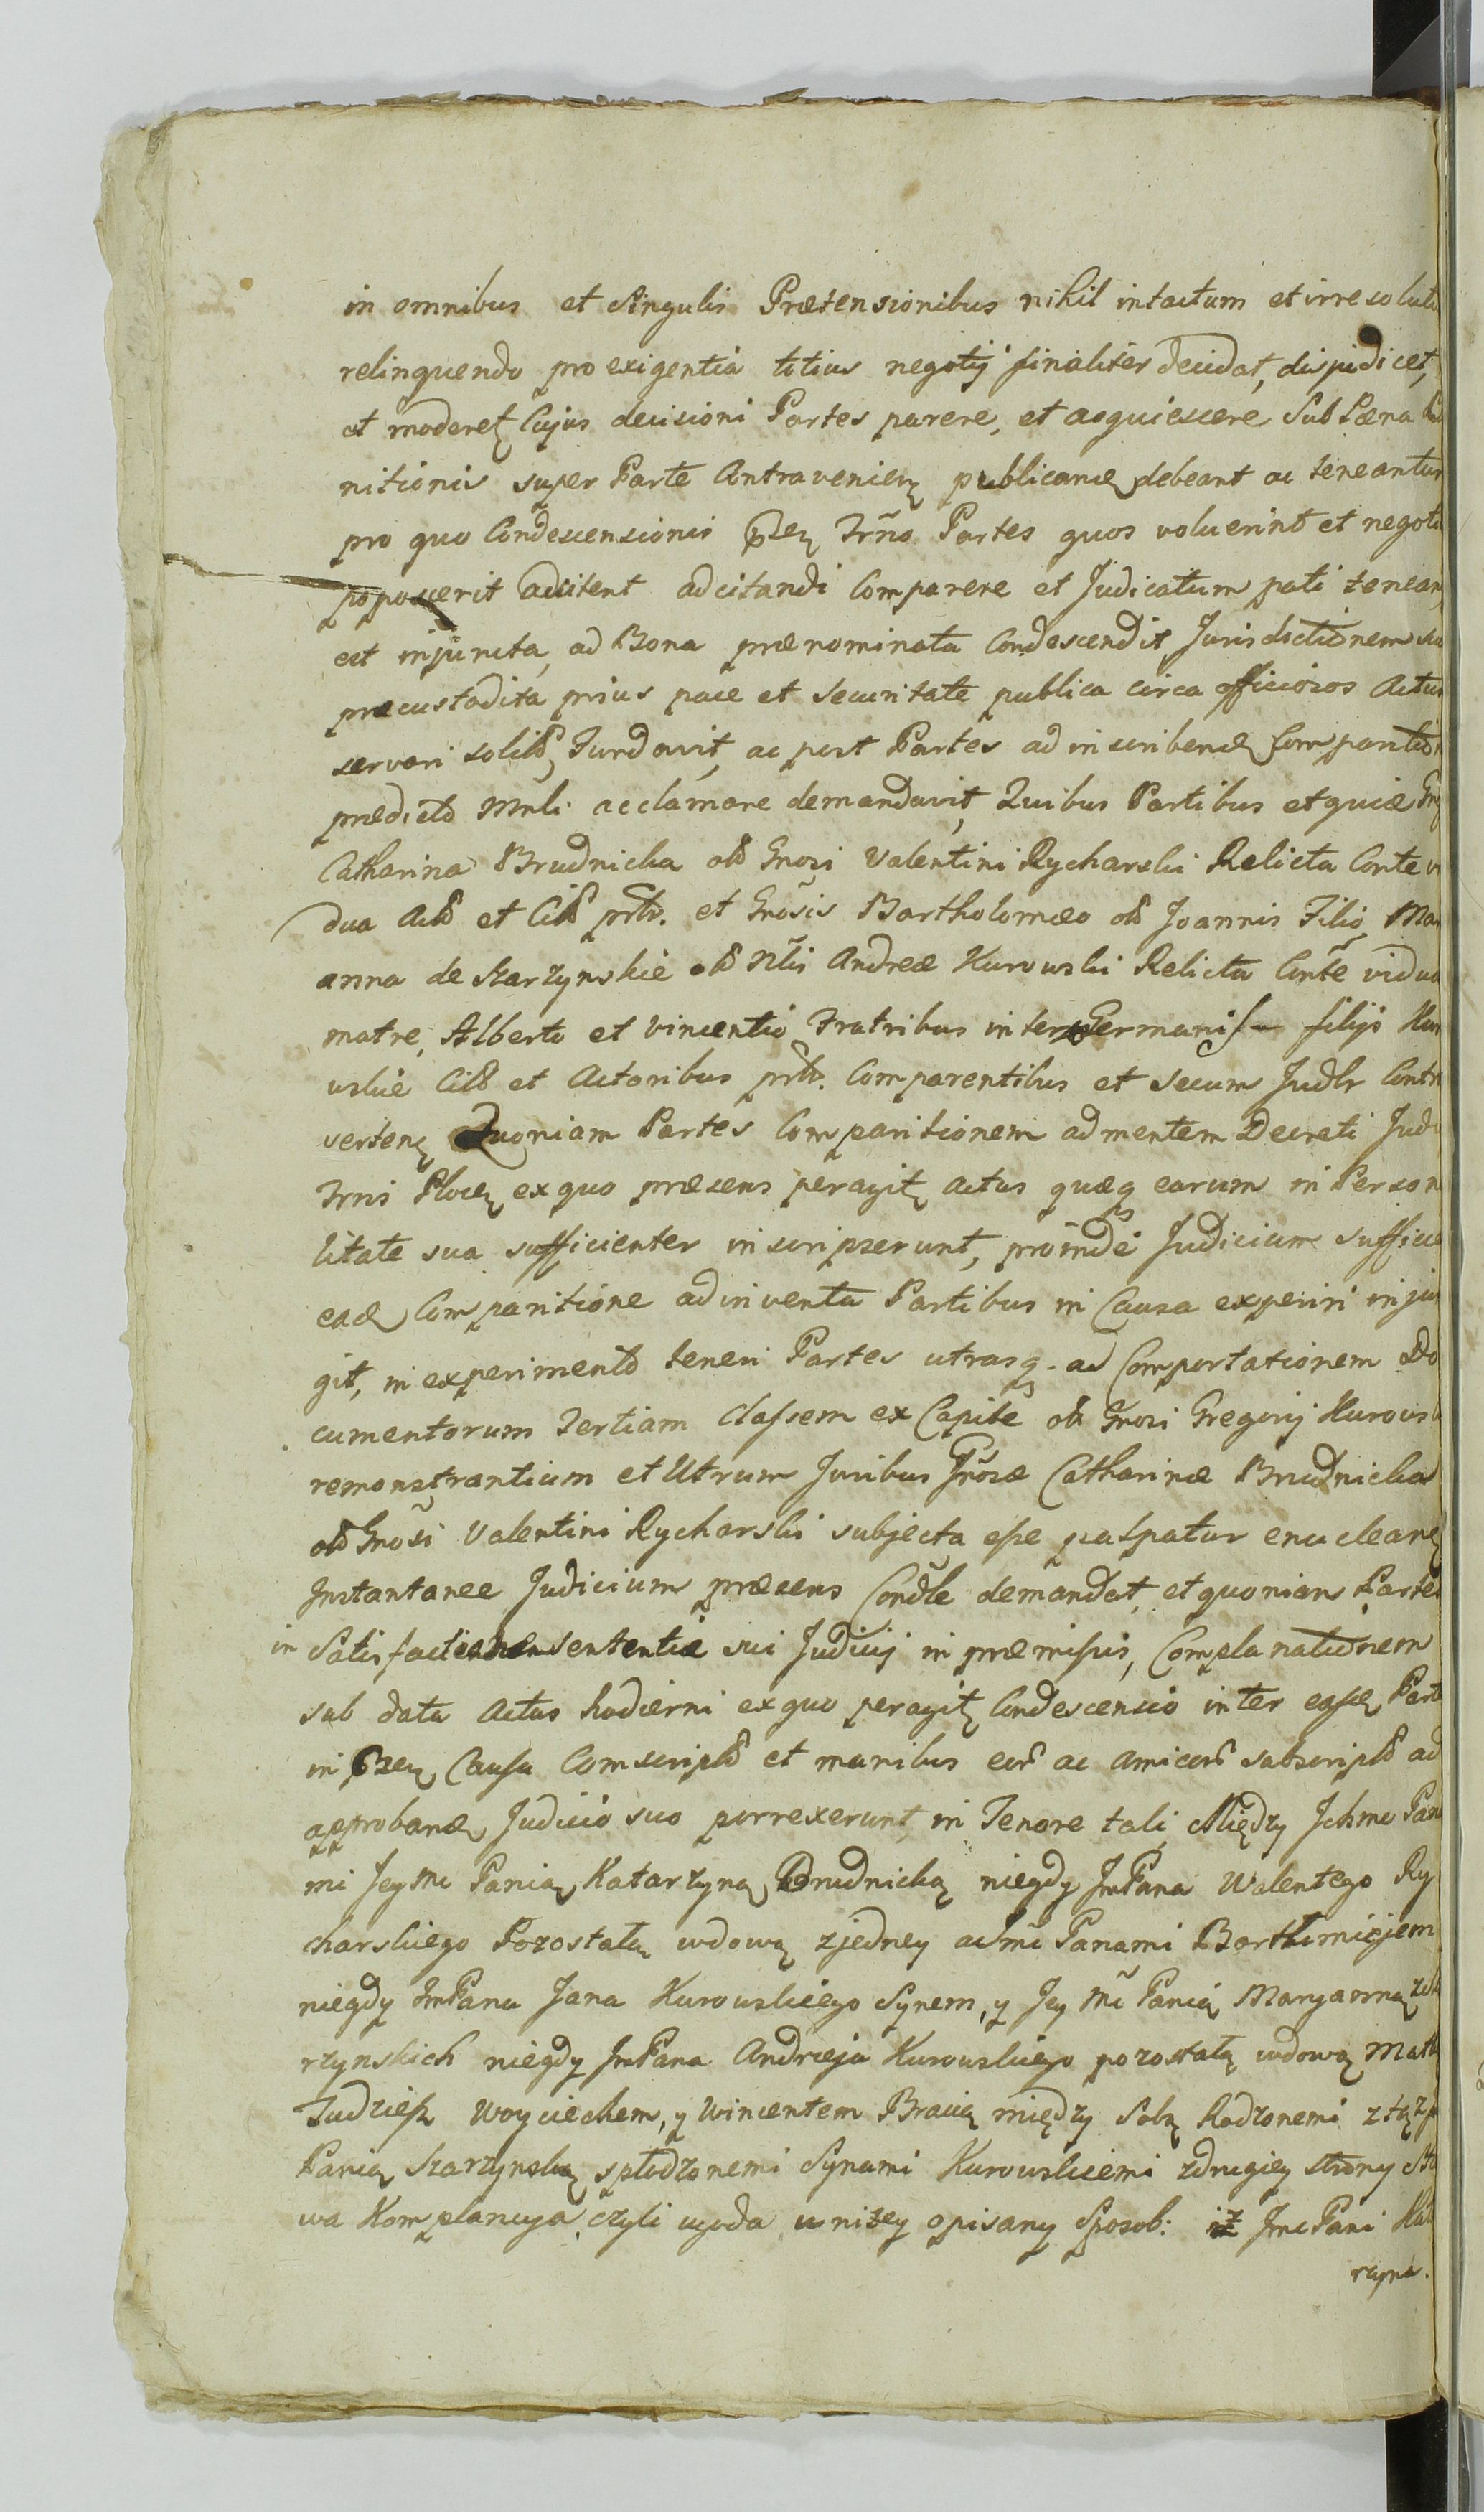 in omnibus et Singulis Prætensionibus nihil intactum et irresolut
relinquendo pro exigentia totius negotij finaliter decidat, dispudicet,
et moderet Cujus decisioni Partes parere, et acquiescere Sub Pæna
nitionis super Parte Contravenien publicanæ debeant ac teneantur
pro quo Condescensionis Trño Partes quos voluerint et negoti
poposcerit adcitent adcitandi Comparere et Judicatum pati tenean
est injuncta, ad Bona prænominata Condescendit, Jurisdictionem su
præcustodita prius pace et Securitate publica circa officiosos Actus
servari solit fundavit, ac post Partes ad inscribend Comparitio
prædicto Mnli acclamare demandavit, Quibus Partibus et quidæ
Catharina Brudnicka olb Gnosi Valentini Rycharski Relicta Conte v
dua Actb et Citb prtb. et Gnosis Bartholomæo olb Joannis Filio, Mar
anna de Skarzynskie olb Nlis Andreæ Kurowski Relicta Conte vidua
matre, Alberto et Vincentio Fratribus inter se Germanis filijs Kur
uskie Citb et Actoribus prtb. Comparentibus et secum Judlr Contr
verten Quoniam Partes Comparitionem ad mentem Decreti Judi
Trnis Plocen ex quo præsens peragit actus quæq earum in Person
litate sua sufficienter inscripserunt, proinde Judicium suffici
ead Comparitione adinventa Partibus in Causa experiri injun
git, in experimento teneri Partes utrasq. ad Comportationem Do
cumentorum Tertiam Classem ex Capite olb Gnosi Gregorij Kurows
remonstrantium et Utrum Juribus Gnosæ Catharinæ Brudnicka
olb Gnosi Valentini Rycharski subjecta esse palpatur enuclean
Instantanee Judicium præsens Condle demandat, et quoniam Partes
in Satisfactionem sententiæ sui Judicij in præmissis, Complanationem
sub data Actus hodierni ex quo peragit Condescensio inter easd Part
in Causa Comscriptb et manibus eorb ac amicorb subscriptb ad
approband Judicio suo porrexerunt, in Tenore tali, Między Jchmc Pan
mi Jeymc Panią Katarzyną Brudnicką niegdy JmPana Walentego Ry
charskiego Pozostałą wdową z jedney a Jmc Panami Bartłomiejem
niegdy JmPana Jana Kurowskiego Synem, y Jey Mc Panią Maryanną z Sk
rzynskich niegdy JmPana Andrzeja Kurowskiego pozostałą wdową Matk
Tudziesz Woyciechem, y Wincentem Bracią między Sobą Rodzonemi z tąż
Panią Skarzynską spłodzonemi Synami Kurowskiemi z drugiey strony sta
wa Komplancya, czyli ugoda w niżey opisany Sposob: iż JmcPani Kat
rzyna.